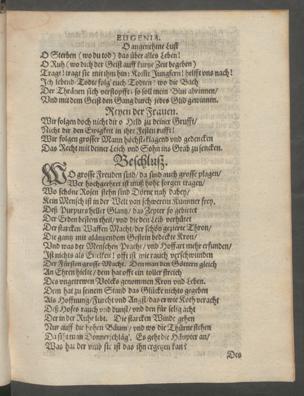 EUGENIA.
O angenehme Lust
O Sterben (wo du tod) das über alles Leben!
O Ruh (wo dich der Geist auff kurtze Zeit begeben)
Tragt! tragt sie mit ihm hin: Kostte Jungfern! helfft uns nach!
Ich lebend-Todte folg' euch Todten: wo die Bach
Der Thränen sich verstopfft: so soll mein Blut abrinnen/
Und mit dem Geist den Gang durch jedes Glid gewinnen.
Reyen der Frauen.
Wir folgen doch nicht dir o Held zu deiner Grufft/
Nicht dir den Ewigkeit in ihre Zeilen rufft!
Wir folgen grosser Mann höchstklagend und gedencken
Das Recht mit deiner Leich und Sohn ins Grab zu sencken.
Beschluß.
WO grosse Freuden sind/ da sind auch grosse plagen/
Wer hochgeehret ist muß hohe sorgen tragen/
Wo schöne Rosen stehn sind Dörne nah dabey/
Kein Mensch ist in der Welt von schwerem Kummer frey.
Deß Purpurs heller Glantz/ das Zepter so gebietet
Der Erden bestem theil/ und die den Leib verhütet
Der starcken Waffen Macht/ der schön gezierte Thron/
Die gantz mit gläntzendem Gestein bedeckte Kron/
Und was der Menschen Pracht/ und Hoffart mehr erfunden/
Ist nichts als Eitelkeit! offt ist wie rauch verschwunden
Der Fürsten grosse Macht. Den man den Göttern gleich
An Ehren hielte/ dem hat offt ein toller streich
Des ungetrewen Volcks genommen Kron und Leben.
Dem hat zu seinem Stand das Glücke nichts gegeben
Als Hoffnung/ Furcht und Angst/ das er wie Koth veracht
Deß Hofes rauch und dunst/ und den für selig acht
Der in der Ruhe lebt. Die starcken Winde gehen
Nur auff die hohen Bäum/ und wo die Thürne stehen
Da ist ein Donnerschlag. Es geht die Häupter an/
Was hat der
ist das ihn ergetzen kan?
Des